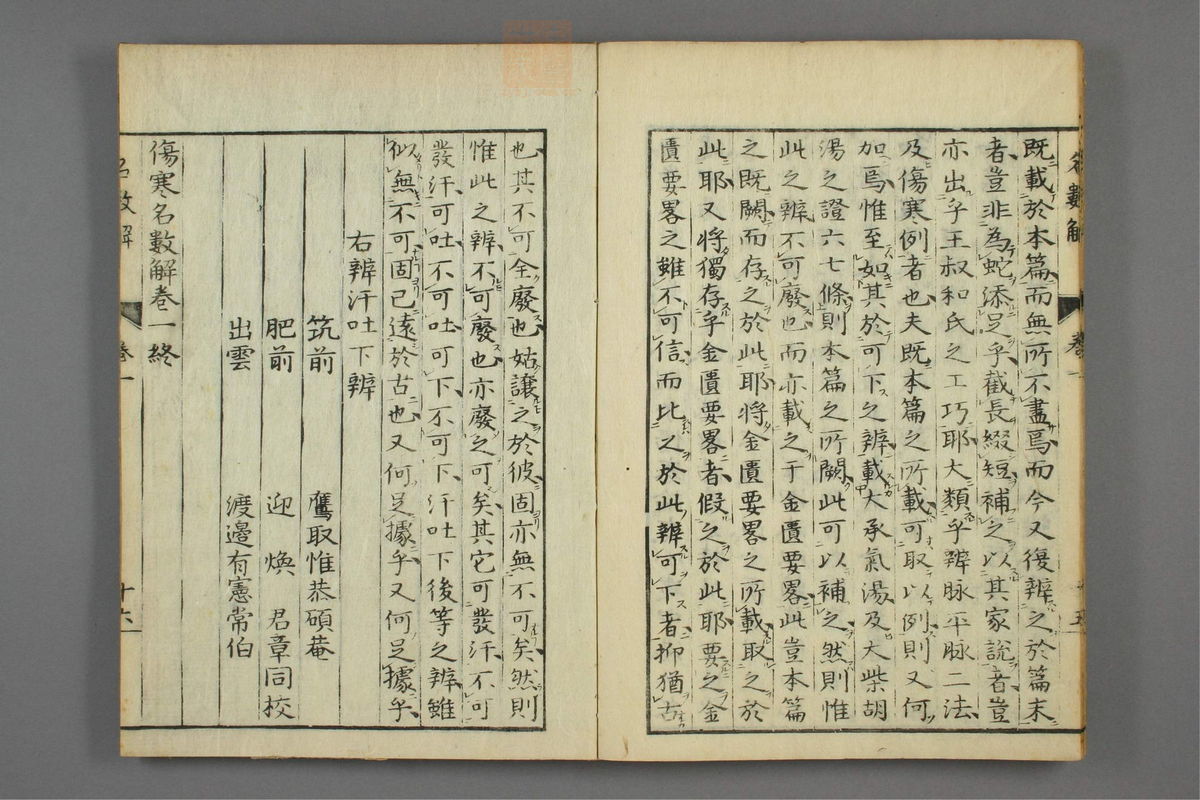 既載於本篇而無所不盡焉而今又復辨之於篇末
者豈非為蛇添足乎截長綴短補之以其家說者豈
亦出乎王叔和氏之工巧耶大類乎辨脉平脉二法
及傷寒例者也夫既本篇之所載可取以例則又何
加焉惟至如其於可下之辨載大承氣湯及大柴胡
湯之證六七條則本篇之所闕此可以補之然則惟
此之辨不可廢也而亦載之于金匱要畧此豈本篇
之既闕而存之於此耶將金匱要畧之所載取之於
此耶又將獨存乎金匱要畧者假之於此耶要之金
匱要畧之雖不可信而比之於此辨可下者抑猶古
名數解
卷一
十五
也其不可全廢也姑讓之於彼固亦無不可矣然則
惟此之辨不可廢也亦廢之可矣其它可發汗不可
發汗可吐不可吐可下不可下汗吐下後等之辨雖
似無不可固已遠於古也又何足據乎又何足據乎
右辨汗吐下辨
筑前 鷹取惟恭碩菴
肥前 迎 煥 君章同校
出雲 渡邉有憲常伯
傷寒名數解卷一終
名數解
卷一
十六